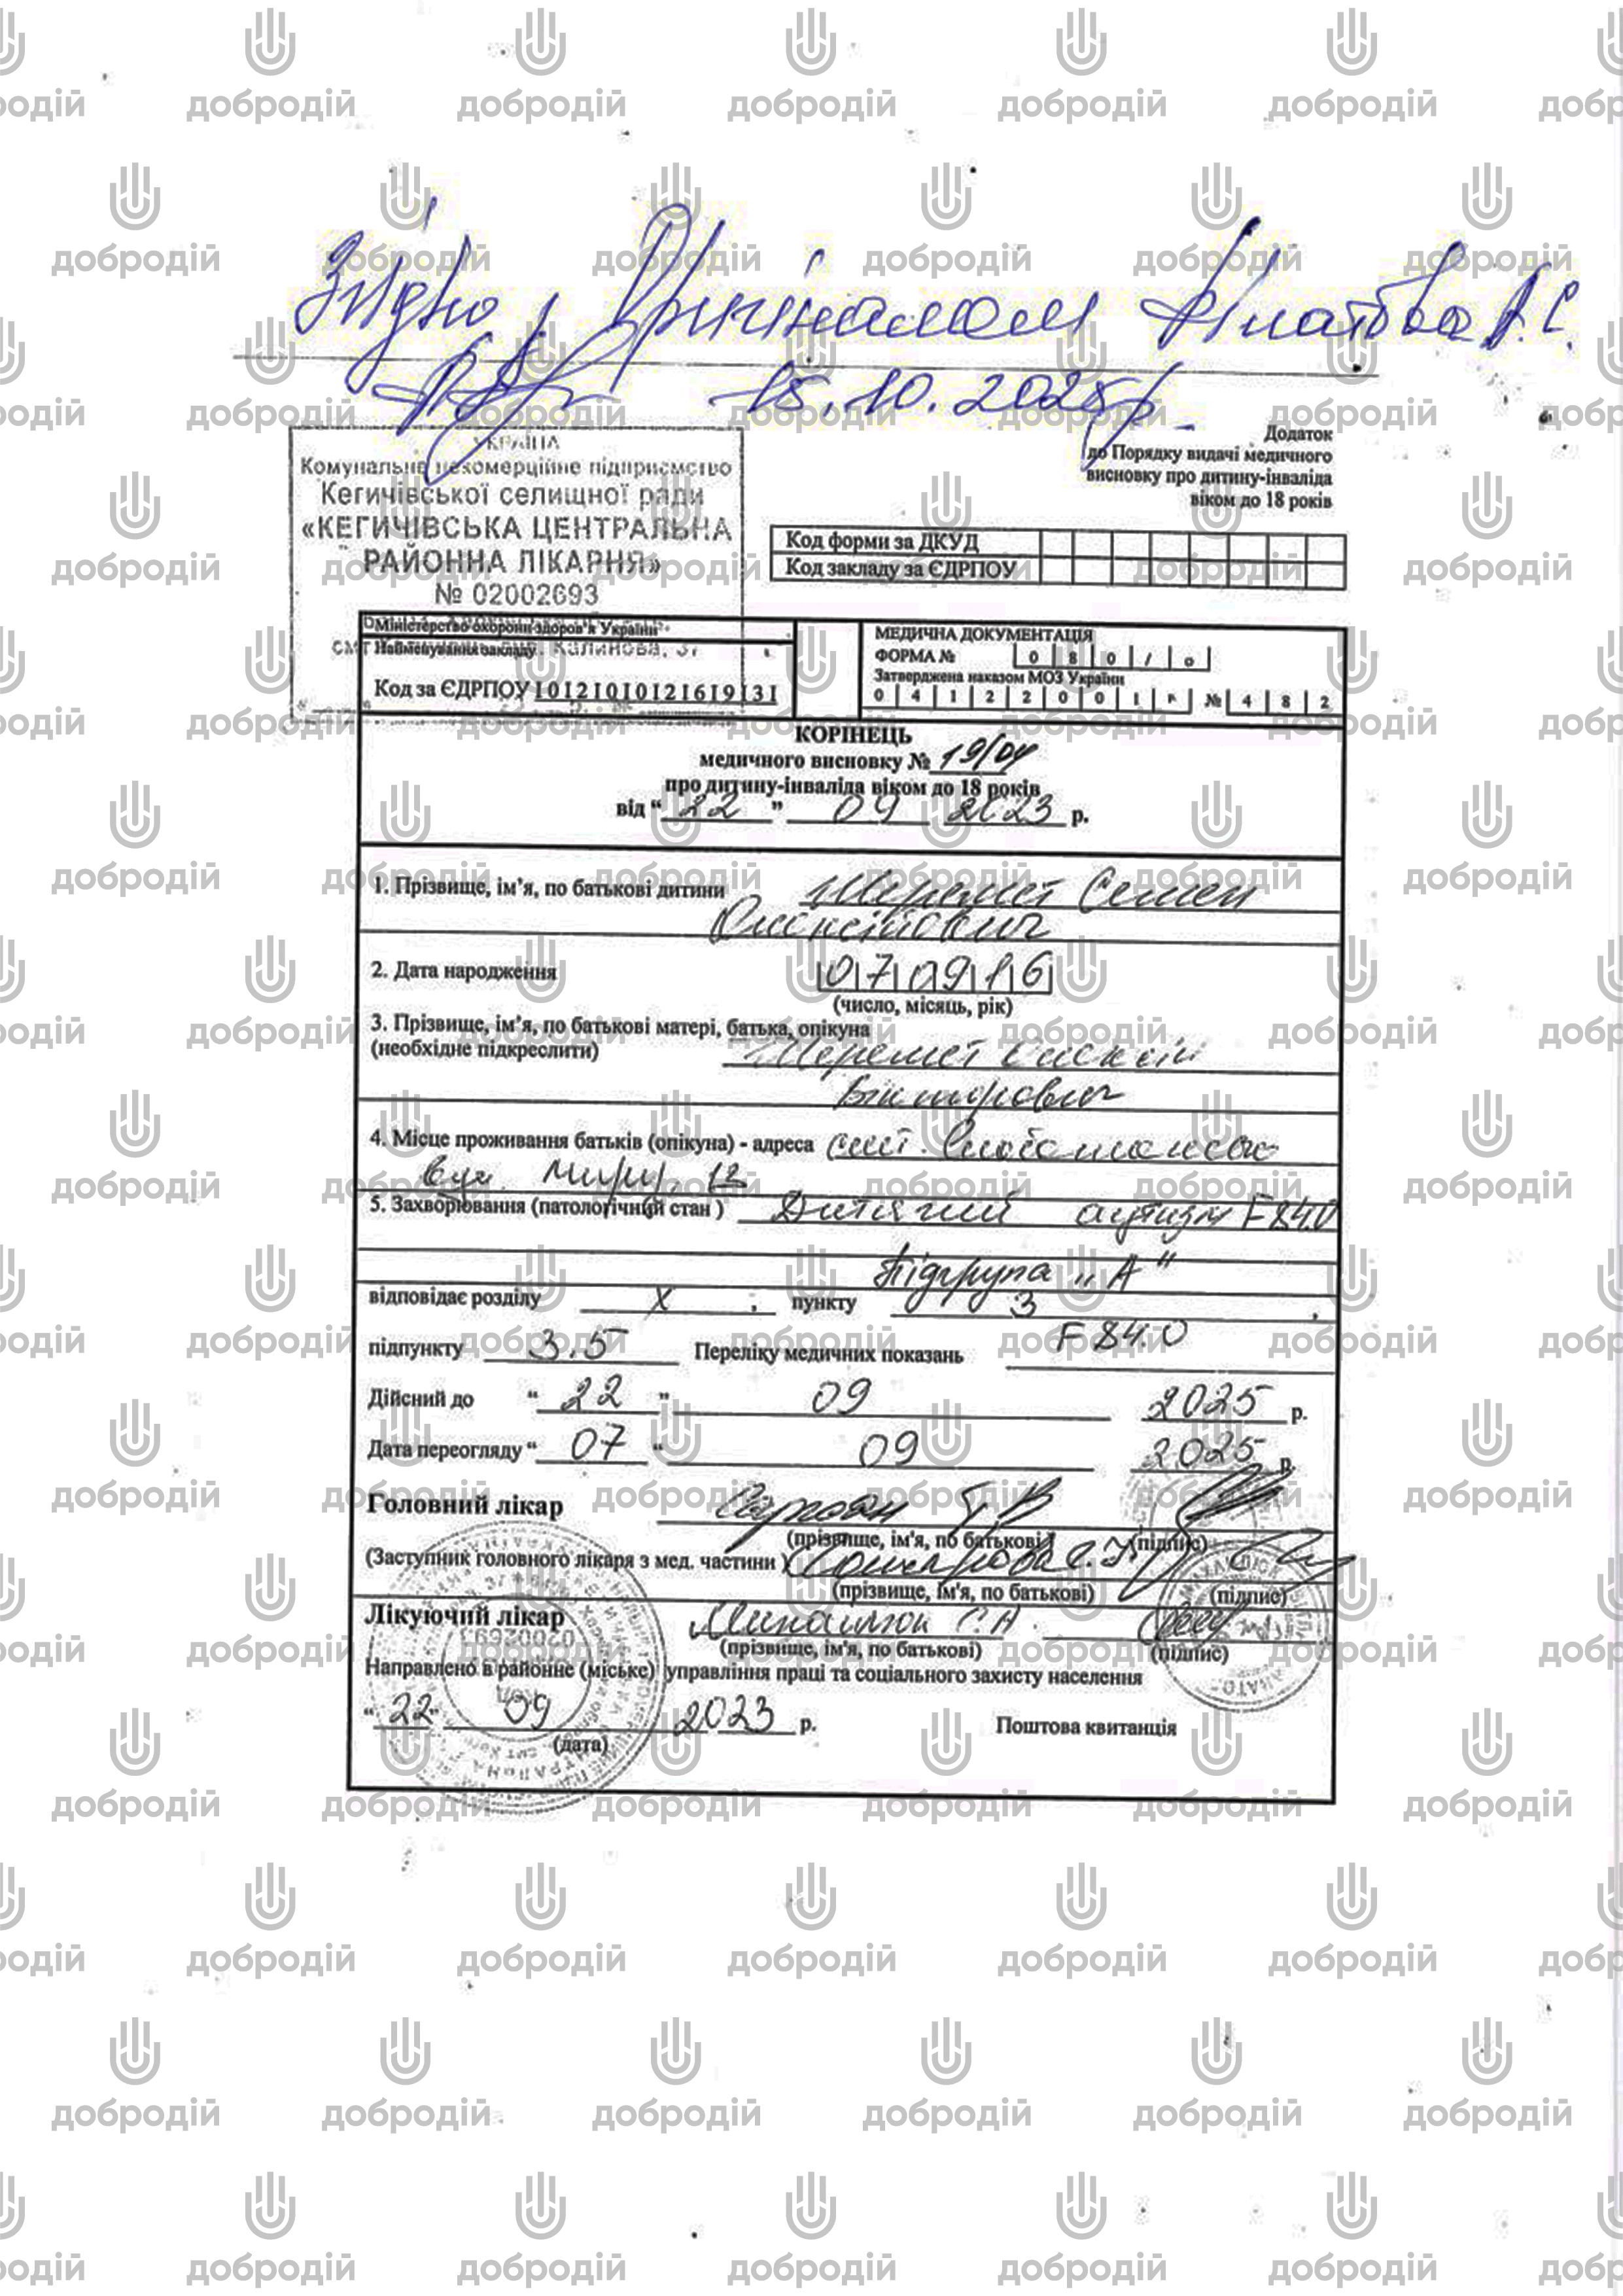 Згідно з Оригіналом
15.10.2025р
УКРАЇНА
Комунальне некомерційне підприємство
Кегичівської селищної ради
«КЕГИЧІВСЬКА ЦЕНТРАЛЬНА
РАЙОННА ЛІКАРНЯ»
№ 02002693
Додаток
до Порядку видачі медичного
висновку про дитину-інваліда
віком до 18 років
Код форми за ДКУД
Код закладу за ЄДРПОУ
Міністерство охорони здоров'я України
Найменування закладу
смт Калинова, 37
Код за ЄДРПОУ |0|2|0|0|2|6|9|3|
МЕДИЧНА ДОКУМЕНТАЦІЯ
ФОРМА № 0 8 0 / о
Затверджена наказом МОЗ України
0 4 1 2 2 0 0 1 р. № 4 8 2
КОРІНЕЦЬ
медичного висновку № 19/04
про дитину-інваліда віком до 18 років
від “ 22 ” 09 2023 р.
1. Прізвище, ім’я, по батькові дитини Шеремет Семен
Олексійович
2. Дата народження 0 7 0 9 1 6
(число, місяць, рік)
3. Прізвище, ім’я, по батькові матері, батька, опікуна
(необхідне підкреслити) Шеремет Олексій
Вікторович
4. Місце проживання батьків (опікуна) - адреса смт. Слобожанське
вул. Миру,
5. Захворювання (патологічний стан ) Дитячий аутизм F84.0
Підгрупа „А“
відповідає розділу X , пункту 3 ,
підпункту 3.5 Переліку медичних показань F 84.0
Дійсний до “ 22 ” 09 2025 р.
Дата переогляду “ 07 “ 09 2025 р.
Головний лікар Т. В
(прізвище, ім'я, по батькові) (підпис)
(Заступник головного лікаря з мед. частини )
(прізвище, ім'я, по батькові) (підпис)
Лікуючий лікар С. А
(прізвище, ім'я, по батькові) (підпис)
Направлено в районне (міське) управління праці та соціального захисту населення
“ 22 ” 09 2023 р. Поштова квитанція
(дата)
02002693
добродій